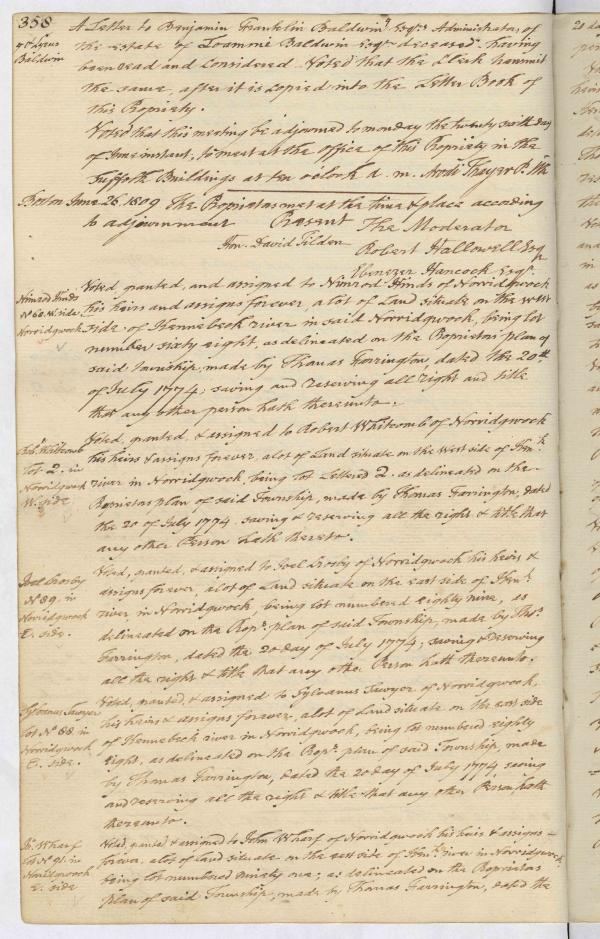 358
A Letter to Benjamin Franklin Baldwin Esqr. Administrator of
the estate of Loammi Baldwin Esqr. deceased having
been read and considered Voted that the Clerk transmit
the same, after it is copied into the Letter Book of
this Propriety.
Baldwin
Voted that this meeting be adjourned to monday the twenty sixth day
of June instant, to meet at the office of this Propriety in the
Suffolk Buildings at ten oClock a.m. Thayer
Boston June 26. 1809 The Proprietors met at the time & place according
to adjournment Present The Moderator
Hon. David Tilden Robert Hallowell Esqr
Ebenezer Hancock Esqr.
Nimrod Hinds
No 68. W. side
Norridgwock
Voted, granted, and assigned to Nimrod Hinds of Norridgwock
his heirs and assigns forever, a lot of Land situate on the west
side of Kennebeck river in said Norridgwock, being lot
number sixty eight, as delineated on the Proprietors plan of
said township, made by Thomas Farrington, dated the 20th
of July 1774; saving and reserving all right and title
that any other person hath thereunto.
Robt. Whitcomb
lot 2. in
Norridgwock
W. side
Voted, granted, & assigned to Robert Whitcomb of Norridgwock
his heirs & assigns forever, a lot of Land situate on the West side of Kenk.
river in Norridgwock, being lot Lettered 2. as delineated on the
Proprietors plan of said Township, made by Thomas Farrington, dated
the 20 of July 1774. saving & reserving all the right & title that
any other Person hath thereto.
Joel Crosby
No 89, in
Norridgwock
E. side.
Voted, granted, & assigned to Joel Crosby of Norridgwock his heirs &
assigns forever, a lot of Land situate on the east side of Kenk.
river in Norridgwock, being lot numbered eighty nine, as
delineated on the Propr. plan of said Township, made by Thos.
Farrington, dated the 20 day of July 1774; saving & reserving
all the right & title that any other Person hath thereunto.
Sylvanus Sawyer
lot No 88 in
Norridgwock
E. side.
Voted, granted, & assigned to Sylvanus Sawyer of Norridgwock,
his heirs & assigns forever, a lot of Land situate on the east side
of Kennebeck river in Norridgwock, being lot numbered eighty
eight, as delineated on the Propr. plan of said Township, made
by Thomas Farrington, dated the 20 day of July 1774 saving
and reserving all the right & title that any other Person hath
thereunto.
Jn. Wharf
lot No 91. in
Norridgwock
E. side
Voted, granted & assigned to John Wharf of Norridgwock his heirs & assigns
forever, a lot of land situate on the east side of Kenk. river in Norridgwock,
being lot numbered ninety one; as delineated on the Proprietors
plan of said Township, made by Thomas Farrington, dated the